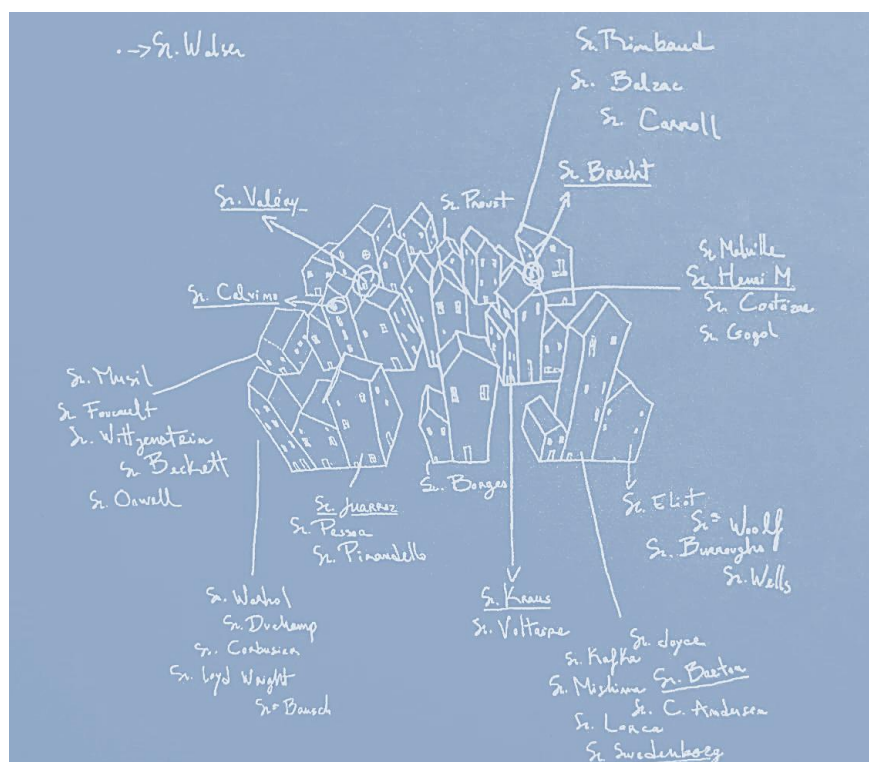 Sr. Walser
Sr. Rimbaud
Sr. Balzac
Sr. Carroll
Sr. Brecht
Sr. Valéry
Sr. Proust
Sr. Calvino
Sr. Melville
Sr. Henri M.
Sr. Cortázar
Sr. Gogol
Sr. Musil
Sr. Foucault
Sr. Wittgenstein
Sr. Beckett
Sr. Orwell
Sr. Juarroz
Sr. Pessoa
Sr. Pirandello
Sr. Borges
Sr. Eliot
Srª Woolf
Sr. Burroughs
Sr. Wells
Sr. Warhol
Sr. Duchamp
Sr. Corbusier
Sr. Loyd Wright
Srª Bausch
Sr. Kraus
Sr. Voltaire
Sr. Joyce
Sr. Kafka
Sr. Mishima Sr. Breton
Sr. C. Andersen
Sr. Lorca
Sr. Swedenborg